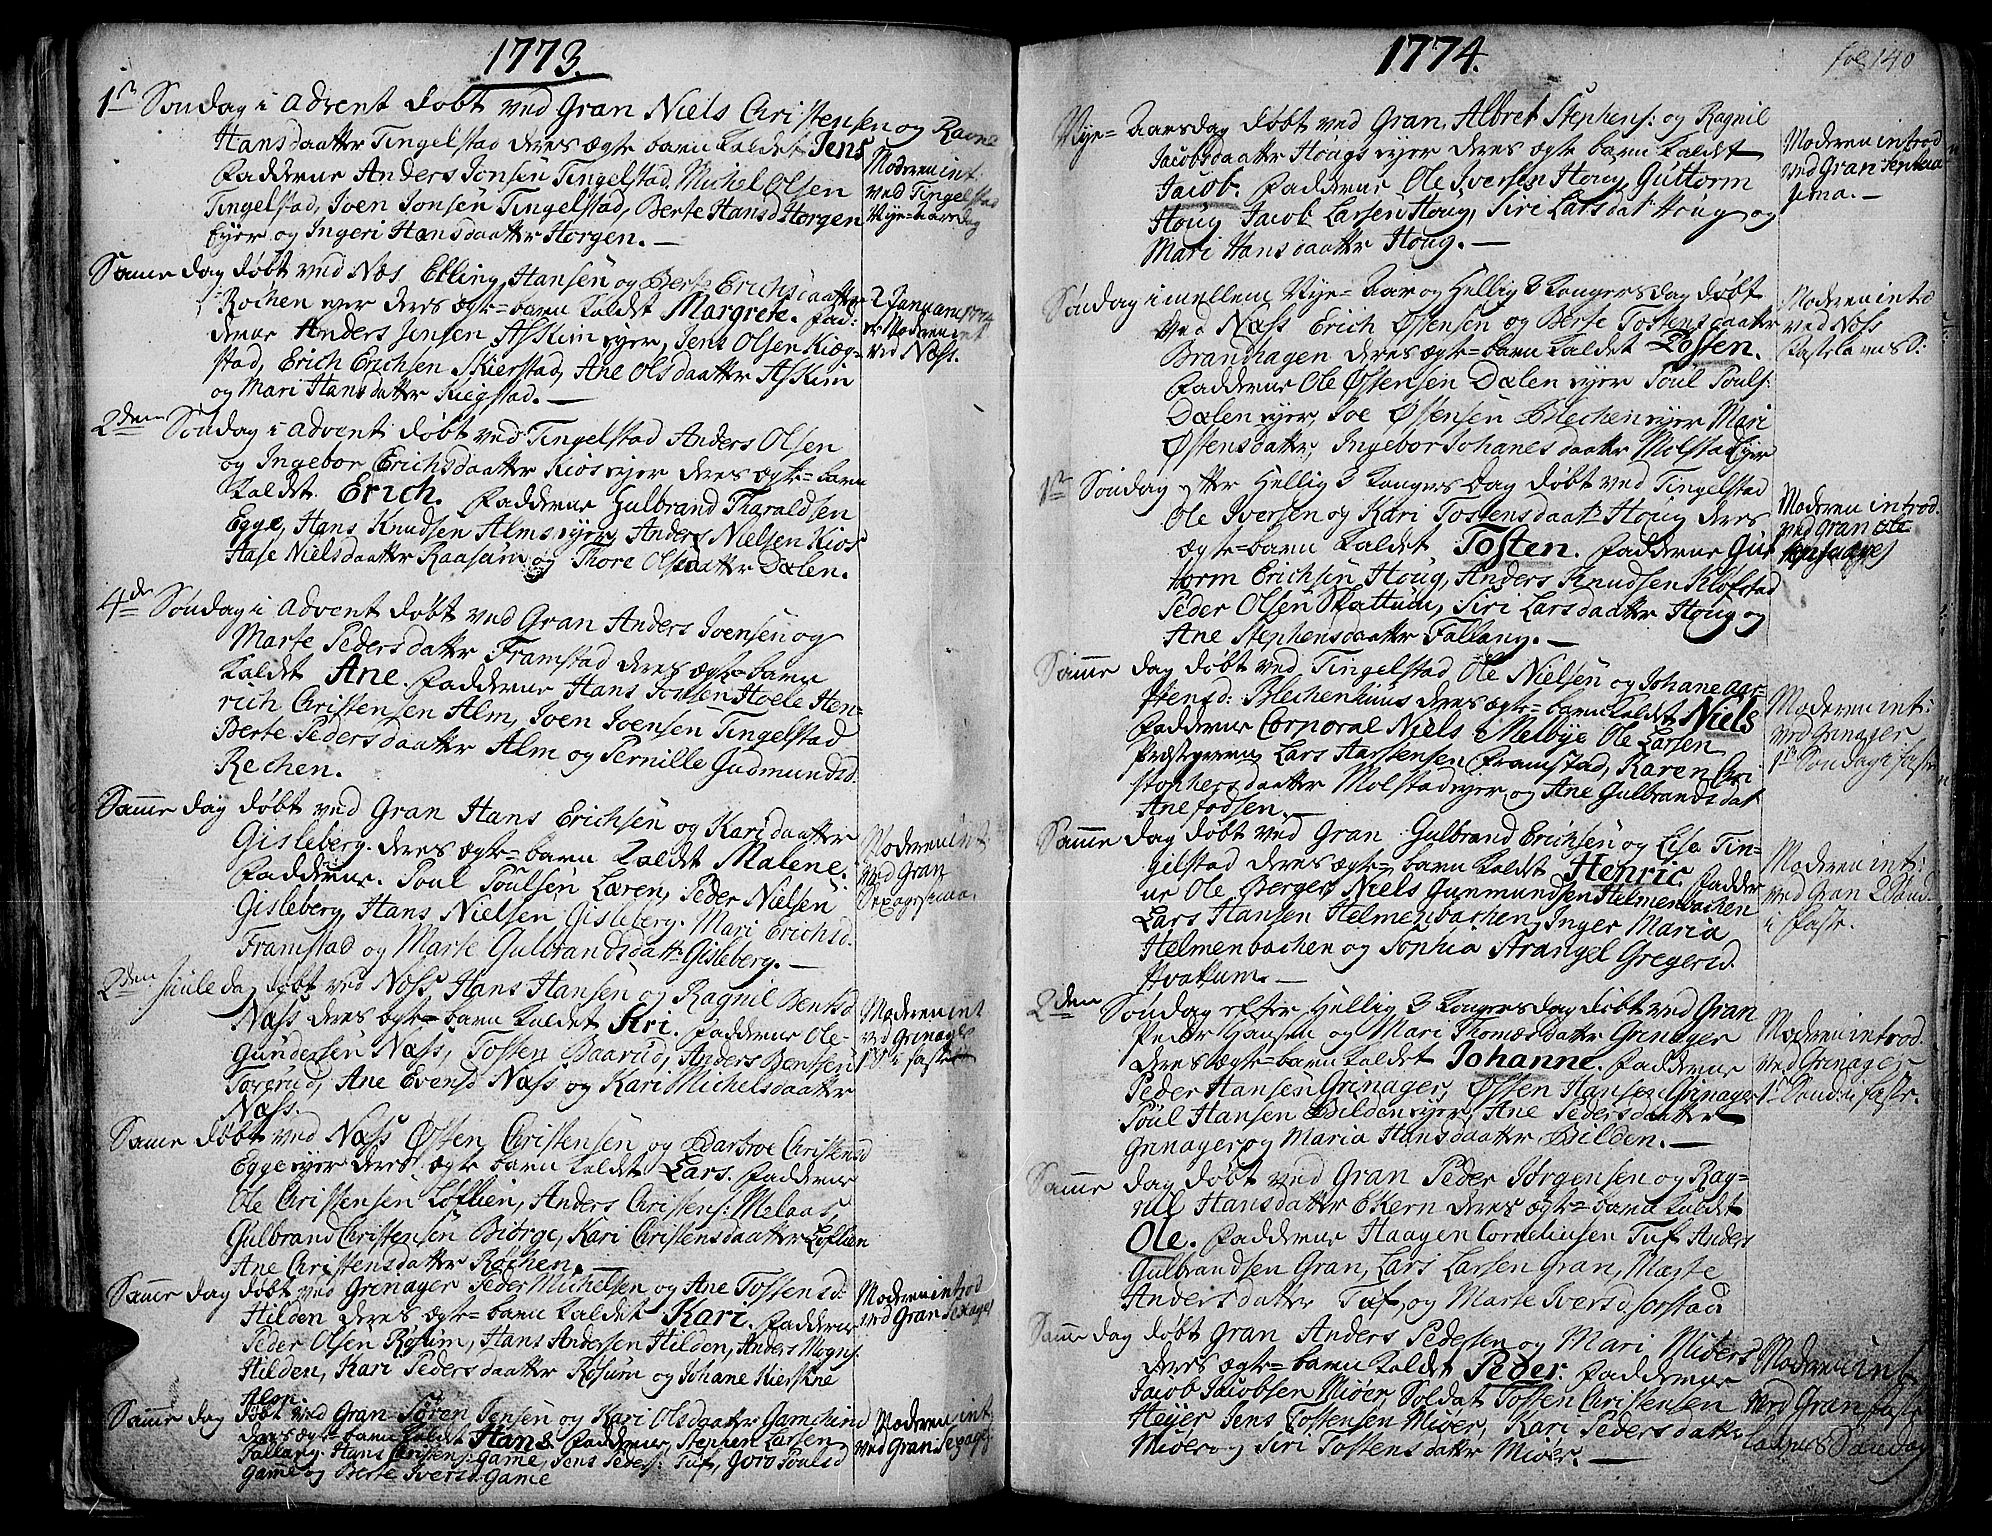 1773.
1ste Søndag i Advent døbt ved Gran Niels Christensen og Ravn
Hansdaatter Tingelstad deres ægte barn kaldet Jens
Fadderne Anders Jonsen Tingelstad, Michel Olsen
Tingelstad, Joen Jonsen Tingelstad, Berte Hansd Horgen
Eyer og Ingeri Hansdaatter Horgen.
Moderen int:
ved Tingelstad
Nye-aarsdag
Same dag døbt ved Næs Elling Hansen og Berte Erichsdaatter
Røchen eyer deres ægte=barn kaldet Margrete. Fad:
derne Anders Jensen Askim eyer, Jens Olsen Kiæg=
stad, Erich Erichsen Skierstad, Ane Olsdaatter Askim
og Mari Hansdatter Kiegstad.
2 Januarii 1774
er Moderen int
ved Næss.
2den Søndag i Advent døbt ved Tingelstad Anders Olsen
og Ingebor Erichsdaatter Kios eyer deres ægte=barn
kaldet Erich. Fadderne Gulbrand Tharaldsen
Egge, Hans Knudsen Alms eyer, Anders Nielsen Kios
Hase Nielsdaatter Raasum og Thore Olsdaatter Dælen.
4de Søndag i Advent døbt ved Gran Anders Joensen og
Marte Pedersdatter Framstad deres ægte=barn
kaldet Ane. Fadderne Hans Tossen Hoele Hen=
rich Christensen Alm, Joen Joensen Tingelstad
Berte Pedersdaatter Alm og Pernille Gudmundsd.
Rechen.
Same dag døbt ved Gran Hans Erichsen og Kari daatter
Gisleberg deres ægte=barn kaldet Malene.
Fadderne. Poul Poulsen Læren, Peder Nielsen
Gisleberg, Hans Nielsen Gisleberg. Mari Erichsd.
Framstad og Marte Gulbrandsdatt. Gisleberg.
Moderen int
ved Gran
Sexagesima.
2den Juule dag døbt ved Næss Hans Hansen og Ragnil Bentsd
Næss deres ægte=barn kaldet Siri. Fadderne Ole
Gundersen Næss, Tosten Baarud, Anders Bentsen
Torerud, Ane Evensd Næss og Kari Michelsdaatter
Næss.
Moderen int
ved Grinager
1ste S: i faste
Same døbt ved Næss Østen Christensen og Barbroe Christensd
Egge eyer deres ægte barn kaldet Lars. Fadderne
Ole Christensen Loflien, Anders Christens: Melaas,
Gulbrand Christensen Biørge, Kari Christensdaatter Loflien
Ane Christensdatter Røchen.
Same dag døbt ved Grinager Peder Michelsen og Ane Tostensd:
Hilden deres ægte=barn kaldet Kari. Fadderne
Peder Olsen Rosum, Hans Andersen Hilden, Anders Mogns:
Hilden, Kari Pedersdaatter Rosum og Johane Kierstine
Alson.
Moderen introd
ved Gran Sexages
Same dag døbt ved Gran Søren Jensen og Kari Olsdaatter Gamehind
deres ægte=barn kaldet Hans. Fadderne, Stephen Larsen
Fallang, Hans Christens: Game, Jens Peders: Tuf, Joro Poulsd
Game og Berte Iversd. Game
Moderen int
ved Gran Sexages
1774.
fol 140
Nye=aarsdag døbt ved Gran, Albret Stephens: og Ragnil
Jacobsdaatter Hougs eyer deres ægte barn kaldet
Jacob. Fadderne Ole Iversen Houg, Guttorm
Houg Jacob Larsen Houg, Siri Larsdat Houg og
Mari Hansdaatter Houg.
Moderen introd
ved Gran Septua
gesima.
Søndag imellem Nye=Aar og Hellig 3 Kongersdag døbt
ved Næss Erich Østensen og Berte Tostensdaatter
Brandhagen deres ægte=barn kaldet Tosten.
Fadderne Ole Østensen Dælen eyer Poul Pouls:
Dælen eyer, Joe Østensen Blechen eyer Mari
Østensdatter, Ingebor Johanesdaatter Molstad eyer
Moderen introd
ved Næss
Fastelavns S:
1ste Søndag efter Hellig 3 Kongers Dag døbt ved Tingelstad
Ole Iversen og Kari Tostensdaatr Houg deres
ægte=barn kaldet Tosten. Fadderne Gut
torm Erichsen Houg, Anders Knudsen Kløfstad
Peder Olsen Skattum, Siri Larsdaatter Houg og
Ane Stephensdaatter Fallang.
Moderen introd.
ved Gran
Same dag døbt ved Tingelstad Ole Nielsen og Johane Aar=
stensd: Blechenhuus deres ægte=barn kaldet Niels
Fadderne Corporal Niels Melbye Ole Larsen
Præstegeren, Lars Aarstensen Framstad, Karen Chri
stophersdaatter Molstad eyer og Ane Gulbrandsdat
Anefodsen.
Moderen int:
ved Grinager
1ste Søndag i faste
Same dag døbt ved Gran Gulbrand Erichsen og Lise Tin=
gelstad deres ægte=barn kaldet Henric. Fadder
ne Ole Berger, Niels Gunmundsen Helmenbachen
Lars Hansen Helmenbachen, Inger Maria
Helmenbachen og Sophia Strangel Gregersd.
Hvattum.
Moderen int:
ved Gran 2 Sønd.
i Faste.
2den Søndag efter Hellig 3 Kongersdag døbt ved Gran
Peder Hansen og Mari Thomæsdatter Grinager
deres ægte=barn kaldet Johanne. Fadderne
Peder Hansen Grinager, Østen Hansen Grinager
Poul Hansen Bilden eyer, Ane Pedersdaatter
Grinager og Maria Hansdaatter Bilden.
Moderen introd.
ved Grinager
1ste Sønd. i faste.
Same dag døbt ved Gran Peder Jørgensen og Rag=
nil Hansdatter Ekern deres ægte=barn kaldet
Ole. Fadderne Haagen Corneliusen Tuf Anders
Gulbrandsen Gran, Lars Larsen Gran, Marte
Andersdatter Tuf og Marte Iversd Sorstad
Same dag døbt Gran Anders Pedersen og Mari Mioers
deres ægte=barn kaldet Peder. Fadderne
Jacob Jacobsen Mioer Soldat Tosten Christensen
Heyer Jens Tostensen Mioer, Kari Pedersdatter
Mioer og Siri Tostensdatter Mioer.
Moderen int
ved Gran Faste
lavns Søndag